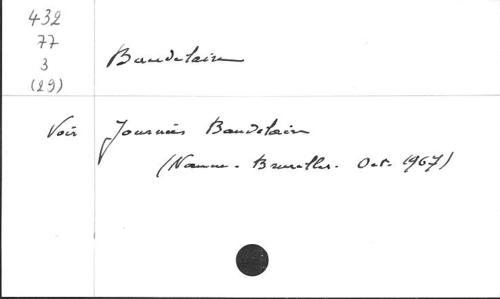 432
77
3
(29)
Baudelaire
Voir Journées Baudelaire
(Namur - Bruxelles - Oct. 1967)